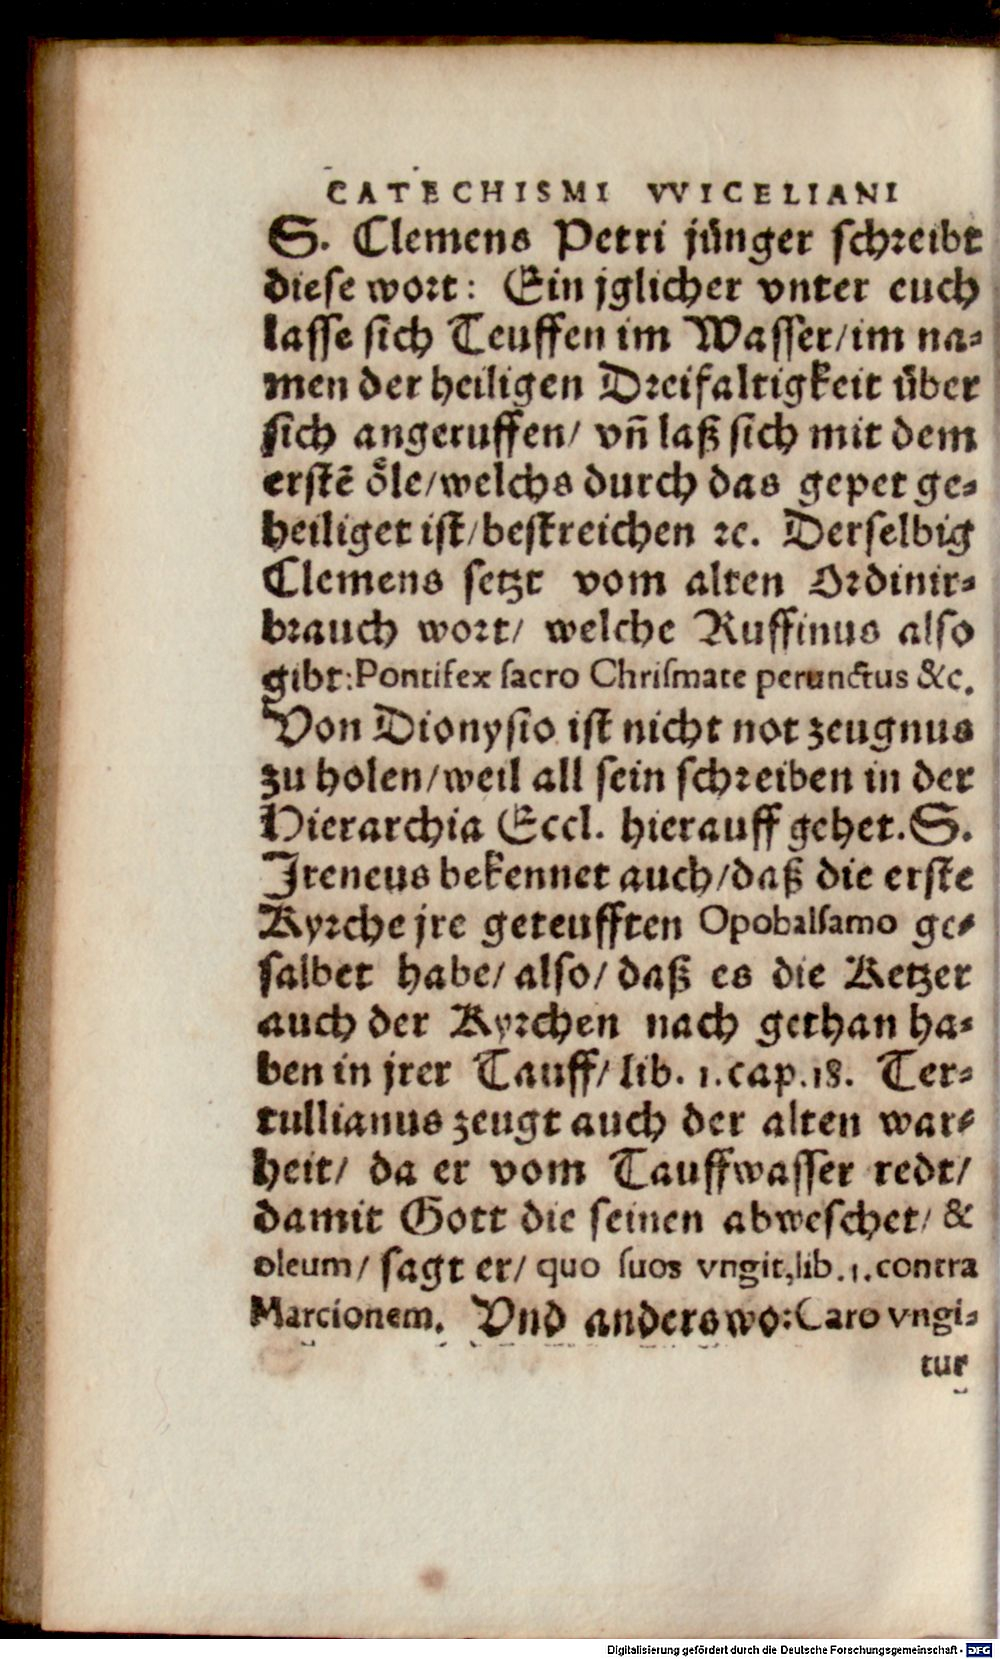 CATECHISMI VVICELIANI
S. Clemens Petri jünger schreibt
diese wort: Ein jglicher vnter euch
lasse sich Teuffen im Wasser/im na⸗
men der heiligen Dreifaltigkeit über
sich angeruffen/ vñ laß sich mit dem
erstē öle/welchs durch das gepet ge⸗
heiliget ist/bestreichen ꝛc. Derselbig
Clemens setzt vom alten Ordinir⸗
brauch wort/ welche Ruffinus also
gibt:Pontifex sacro Chrismate perunctus &c.
Von Dionysio ist nicht not zeugnus
zu holen/weil all sein schreiben in der
Hierarchia Eccl. hierauff gehet.S.
Ireneus bekennet auch/daß die erste
Kyrche jre geteufften Opobalsamo ge⸗
salbet habe/also/daß es die Ketzer
auch der Kyrchen nach gethan ha⸗
ben in jrer Tauff/lib. 1.cap.18. Ter⸗
tullianus zeugt auch der alten war⸗
heit/ da er vom Tauffwasser redt/
damit Gott die seinen abweschet/ &
oleum/ sagt er/ quo suos vngit,lib.1.contra
Marcionem. Vnd anderswo:Caro vngi⸗
tur
Digitalisierung gefördert durch die Deutsche Forschungsgemeinschaft - DFG